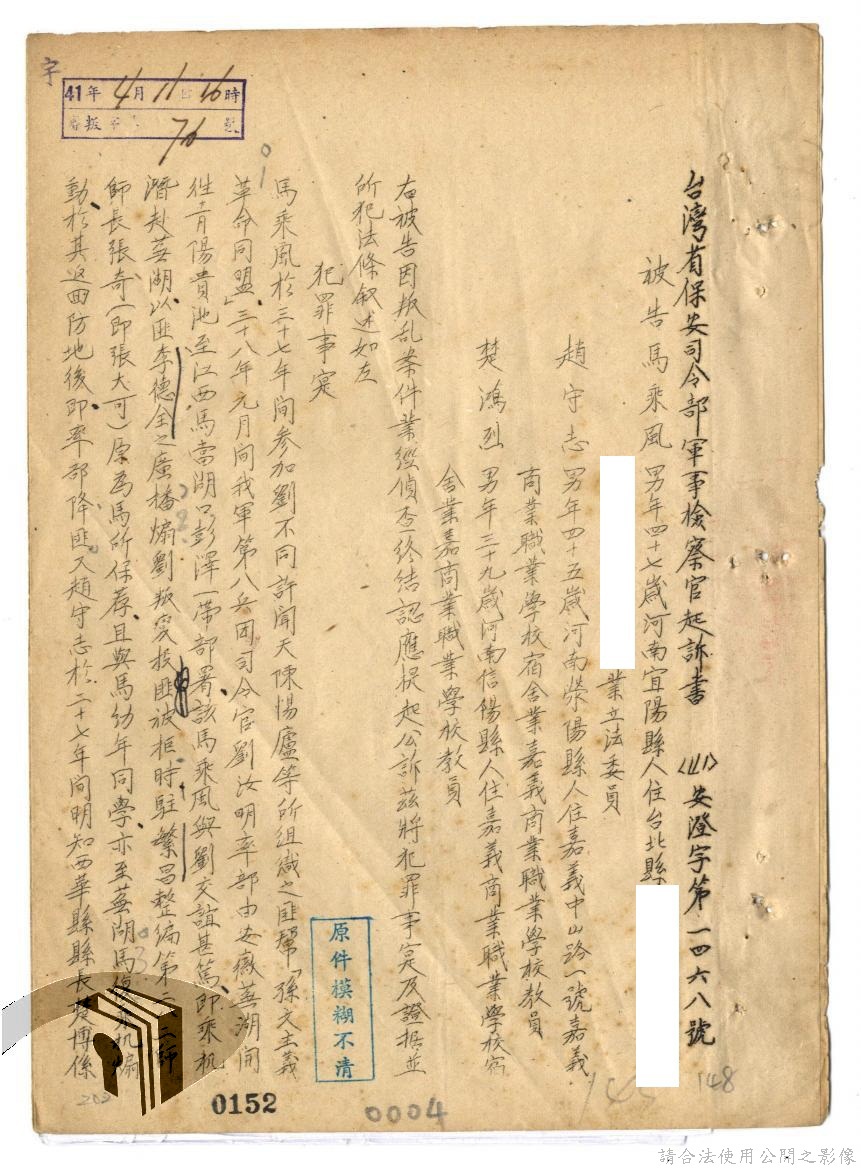 台灣省保安司令部軍事檢察官起訴書 (41)安澄字第一四六八號
被告馬乘風 男年四十七歲河南宜陽縣人住台北縣
業立法委員
趙守志 男年四十五歲河南滎陽縣人住嘉義中山路一號嘉義
商業職業學校宿舍業嘉義商業職業學校教員
楚鴻烈 男年三十九歲河南信陽縣人住嘉義商業職業學校宿
舍業嘉商業職業學校教員
右被告因叛乱案件業經偵查終結認應提起公訴茲將犯罪事實及證據並
所犯法條叙述如左
犯罪事實
馬乘風於三十七年間參加劉不同許聞天陳惕廬等所組織之匪幫「孫文主義
革命同盟」三十八年元月間我軍第八兵团司令官劉汝明率部由安徽蕪湖間
徃青陽貴池至江西馬當湖口彭澤一帶部署該馬乘風與劉交誼甚篤即乘机
潛赴蕪湖以匪李德全之廣播煽劉叛變投匪被拒時駐繁昌整編第
師長張奇(即張大可)原為馬所保荐且與馬幼年同學亦至蕪湖馬復乘机煽
動於其返回防地後即率部降匪又趙守志於二十七年間明知西華縣縣長楚博係
41年4月11日16時
叛字 76號
宇
原件模糊不清
0152
0004
148
145
202
請合法使用公開之影像